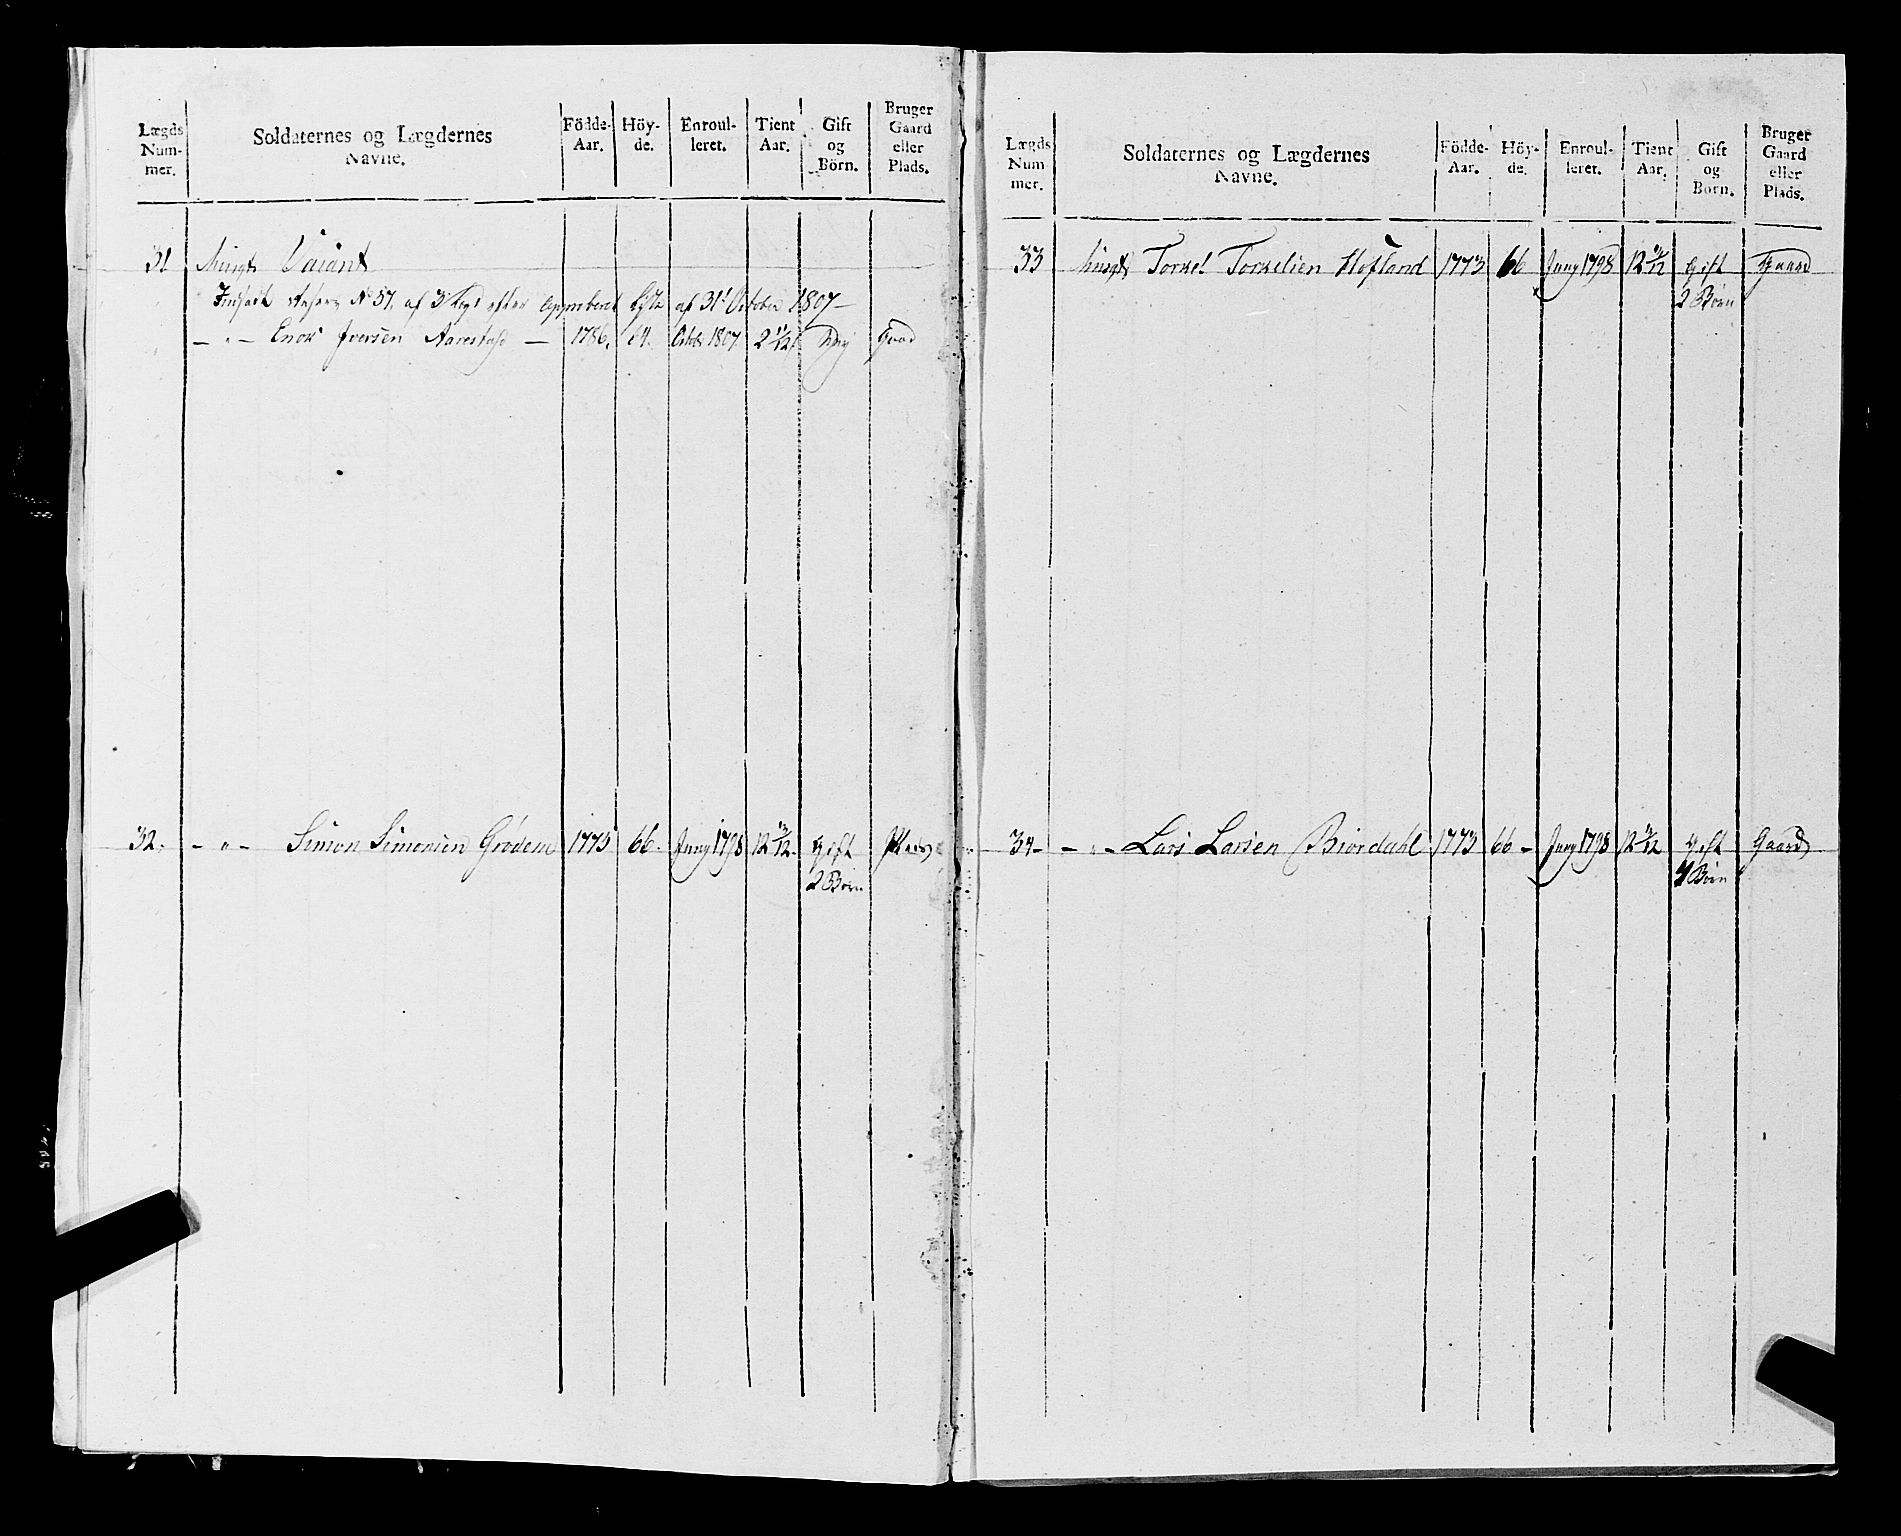 Lægds Num- mer. Soldaternes og Lægdernes Navne. Födde- Aar. Höy- de. Enroul- leret. Tient Aar. Gift og Börn. Bruger Gaard eller Plads.
31 Musqt Vacant
No 57 af 3 efter af 31t October 1807 –
– " – Enok Iversen Aarestad – 1786. 64. Octob 1807 2 2/12 Gaad
32. – " – Simon Simonsen Grödem 1775 66. Juny 1798 12 Gift Plads
2 Börn
Lægds Num mer. Soldaternes og Lægdernes Navne. Födde- Aar. Höy- de. Enroul- leret. Tient Aar. Gift og Börn. Bruger Gaard eller Plads.
33 Musqt Torkel Torkelsen Hofland 1773 66 Juny 1798 12 Gift Gaard
2 Börn
34 – – " – Lars Larsen Biordahl 1773 66 – Juny 1798 12 Gift Gaard
4 Börn